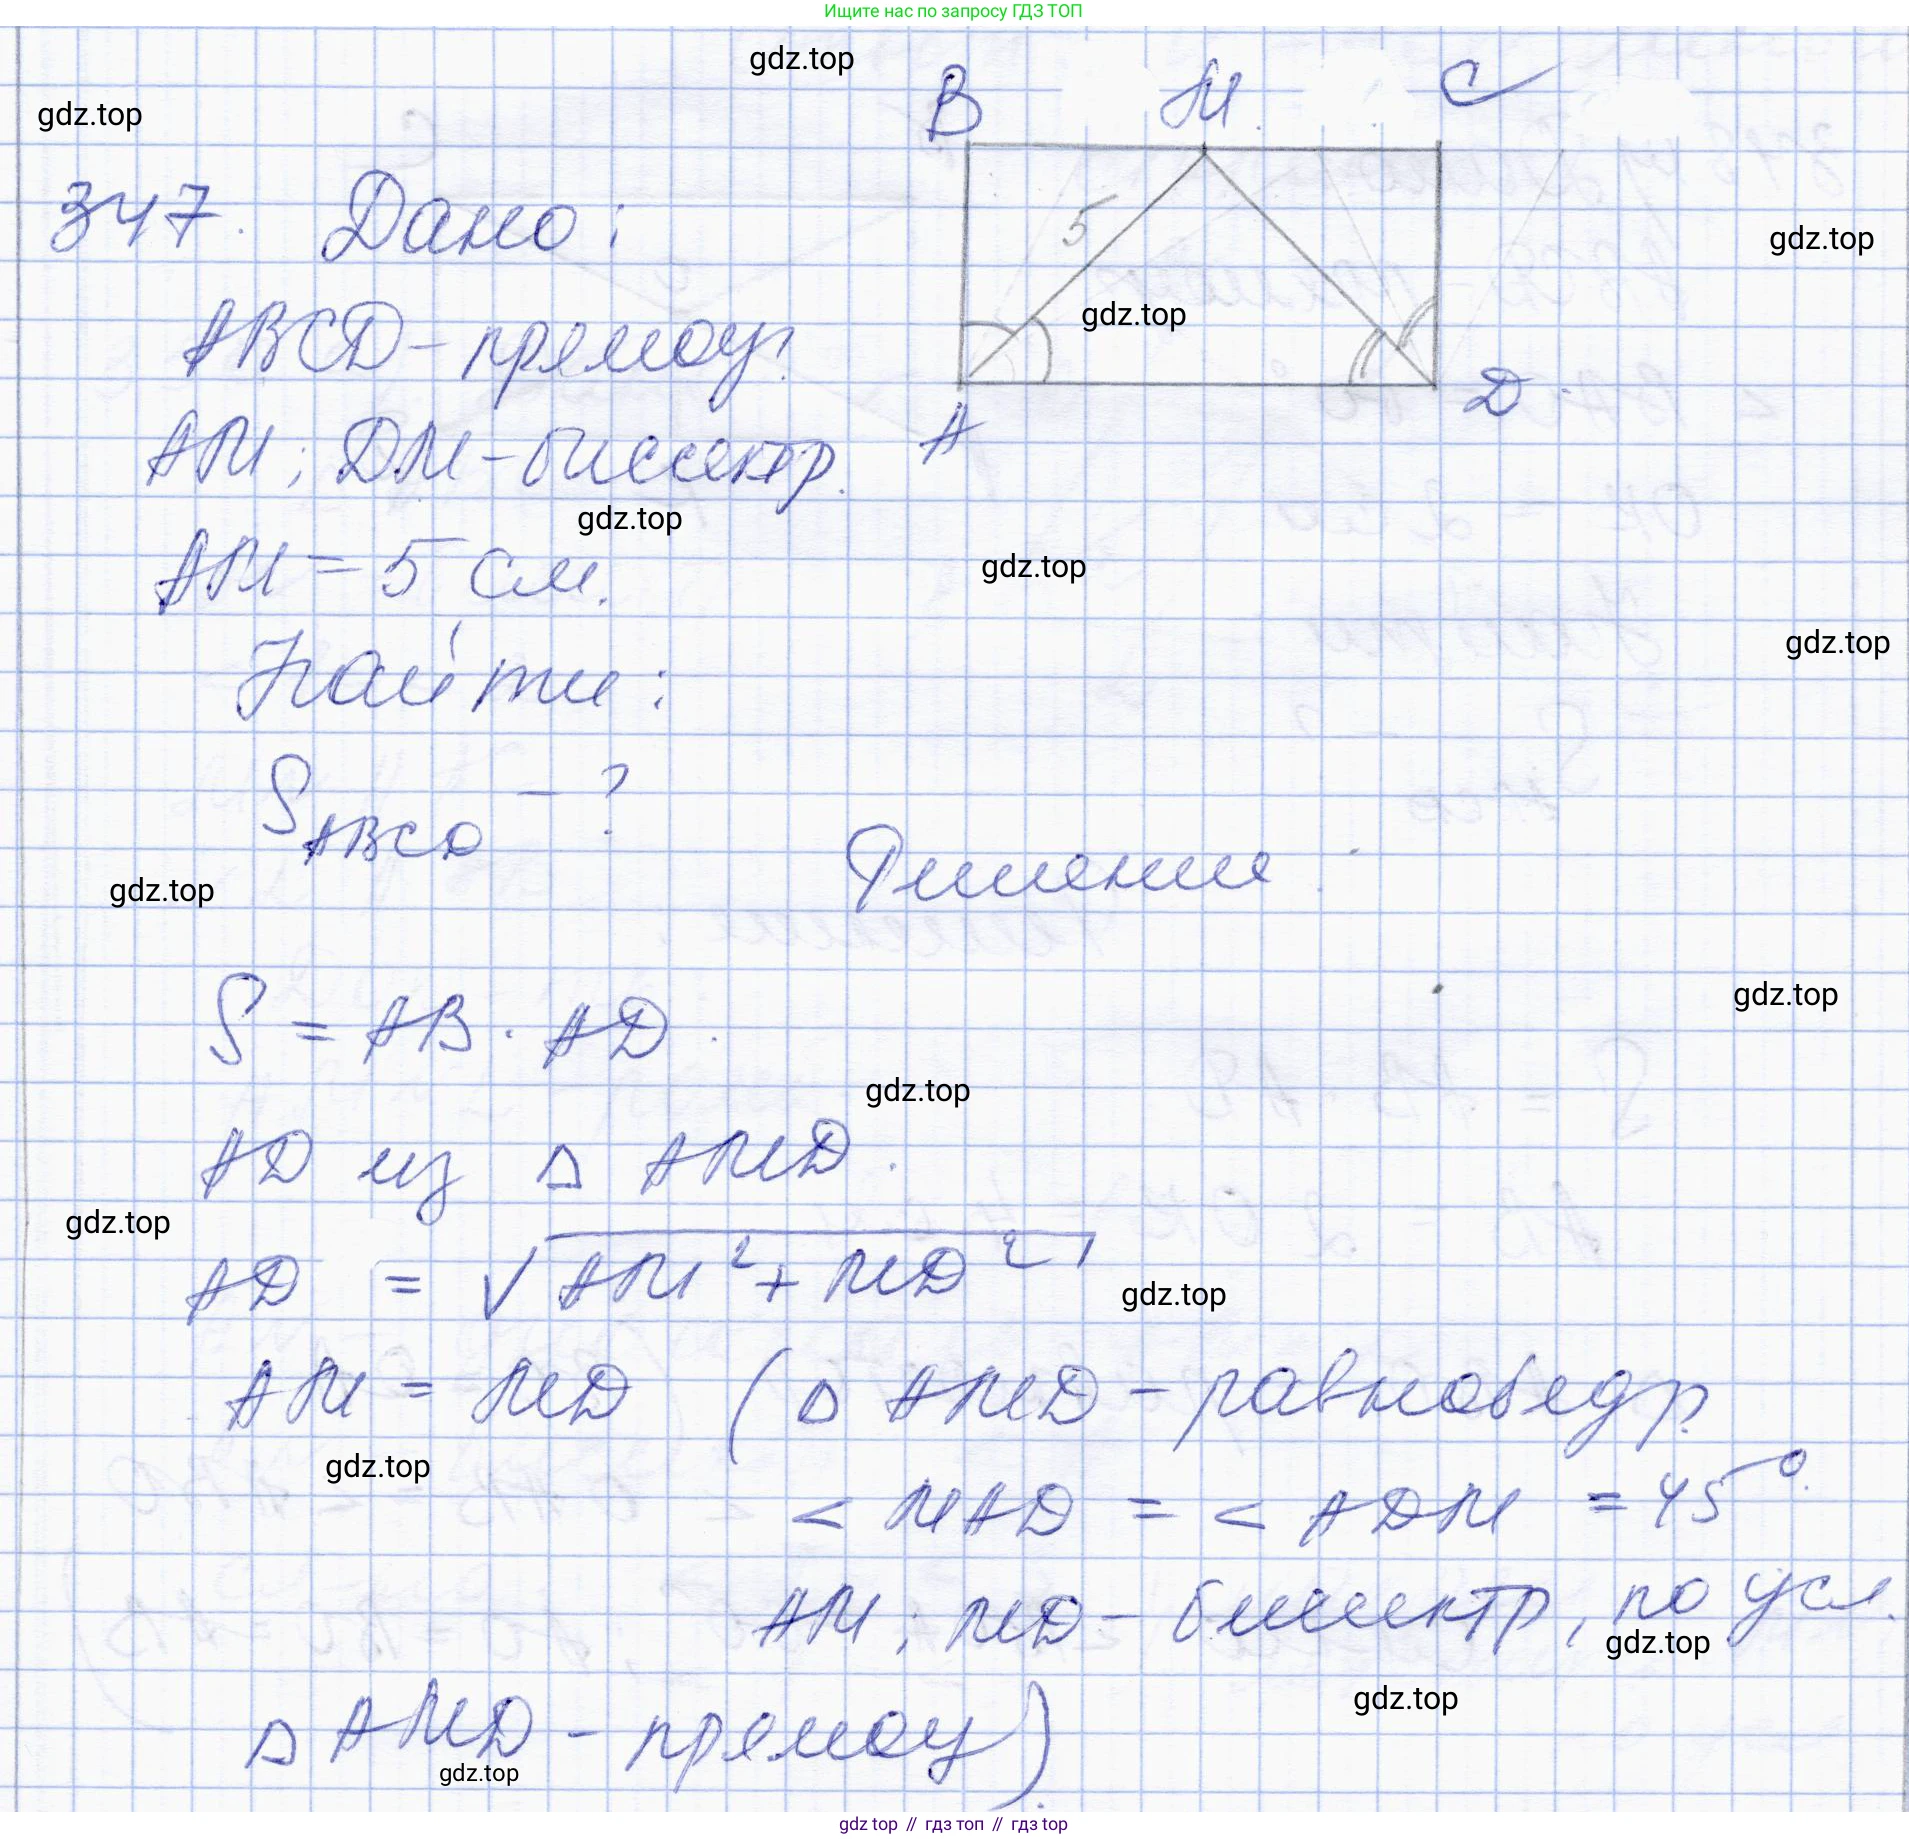 Ищите нас по запросу ГДЗ ТОП
gdz.top
gdz.top
B M C
347. Дано:
5
gdz.top
ABCD - прямоуг.
gdz.top
A D
AM; DM - биссектр.
gdz.top
AM = 5 см.
gdz.top
Найти:
gdz.top
S ABCD - ?
Решение:
gdz.top
S = AB · AD.
gdz.top
gdz.top
AD из △ AMD.
gdz.top
AD = √AM² + MD²
gdz.top
AM = MD (△ AMD - равнобедр.
gdz.top
< MAD = < ADM = 45°.
AM; MD - биссектр, по усл.
gdz.top
gdz.top
△ AMD - прямоу)
gdz.top
gdz top // гдз топ // гдз top